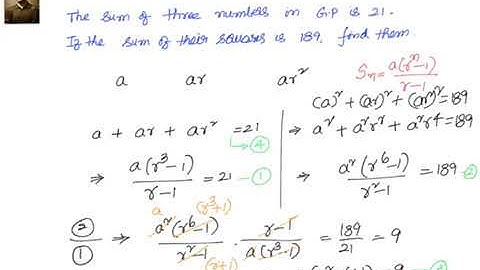 The sum of three numbers in G.P is 21.
If the sum of their squares is 189. find them
a ar ar²
Sₙ = a(rⁿ-1)/(r-1)
(a)² + (ar)² + (ar²)² = 189
a + ar + ar² = 21 → ④
⇒ a² + a²r² + a²r⁴ = 189
⇒ a(r³-1)/(r-1) = 21 — ①
⇒ a²(r⁶-1)/(r²-1) = 189 — ②
a (r³+1)
②/① ⇒ a²(r⁶-1)/(r²-1) · (r-1)/(a(r³-1)) = 189/21 = 9
(r+1)